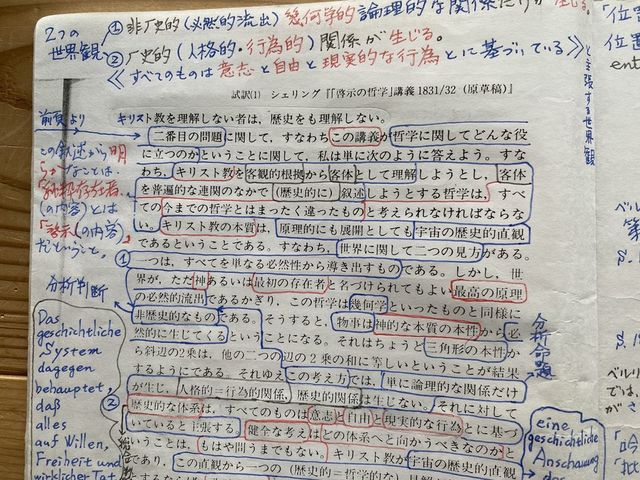 2つの
世界観
① 非歴史的(必然的流出)幾何学的論理的な関係だけが生じる。
② 歴史的(人格的・行為的)関係が生じる。
《すべてのものは意志と自由と現実的な行為とに基づいている》
と主張する世界観
試訳(1) シェリング『「啓示の哲学」講義 1831/32(原草稿)』
キリスト教を理解しない者は、歴史をも理解しない。
二番目の問題に関して、すなわちこの講義が哲学に関してどんな役
に立つのかということに関して、私は単に次のように答えよう。すな
わち、キリスト教を客観的根拠から客体として理解しようとし、客体
を普遍的な連関のなかで(歴史的に)叙述しようとする哲学は、すべ
ての今までの哲学とはまったく違ったものと考えられなければならな
い。キリスト教の本質は、原理的にも展開としても宇宙の歴史的直観
であるということである。すなわち、世界に関して二つの見方がある。
一つは、すべてを単なる必然性から導き出すものである。しかし、世
界が、ただ神あるいは最初の存在者と名づけられてもよい最高の原理
の必然的流出であるかぎり、この哲学は幾何学といったものと同様に
非歴史的なものである。そうすると、物事は神的な本質の本性から必
然的に生じてくるということになる。それはちょうど三角形の本性か
ら斜辺の2乗は、他の二つの辺の2乗の和に等しいということが結果
するようにである。それゆえこの考え方では、単に論理的な関係だけ
が生じ、人格的＝行為的関係、歴史的関係は生じない。それに対して
歴史的な体系は、すべてのものは意志と自由と現実的な行為とに基づ
いていると主張する。健全な考えはどの体系へと向かうべきなのかと
いうことは、もはや問うまでもない。キリスト教が宇宙の歴史的直観
であり、この直観から一つの(歴史的＝哲学的な)見
前頁より
この叙述から明
らかなことは、
(の内容)とは
「啓示(の内容)」
だということ。
①
分析判断
Das
geschichtliche
System
dagegen
behauptet,
daß
alles
auf Willen,
Freiheit und
wirklicher Tat
②
分析命題
eine
geschichtliche
Anschauung
das
「位
位置
ent
ベル
筆
S.
S. 1
ベルリ